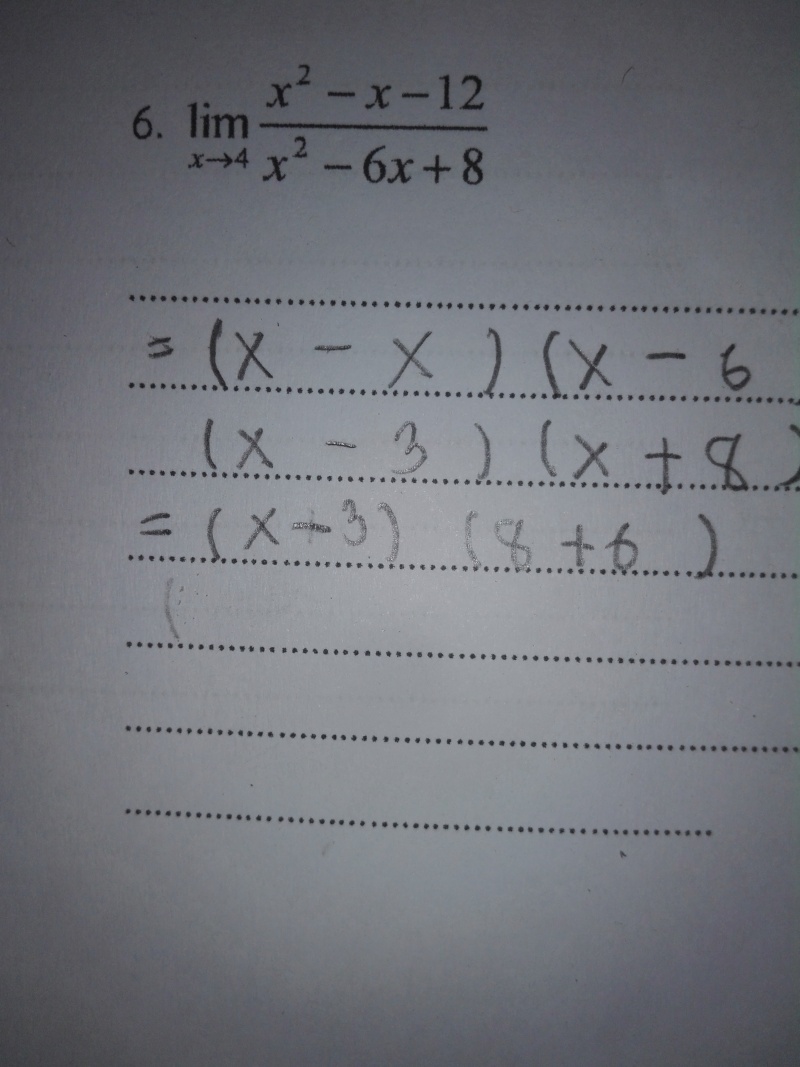 6. lim x→4 (x² − x − 12)/(x² − 6x + 8)
= (x - x) (x - 6
(x - 3) (x + 8)
= (x + 3) (8 + 6)
(